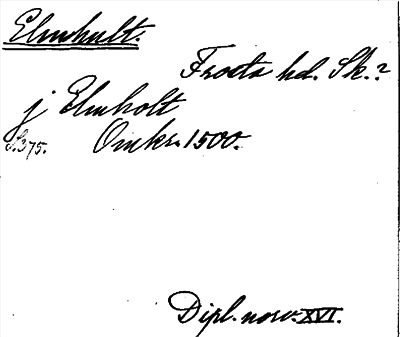 Elmhult.
Frosta hd. Sk.?
j Elmholt
S.375. Omkr. 1500.
Dipl. norv. XVI.